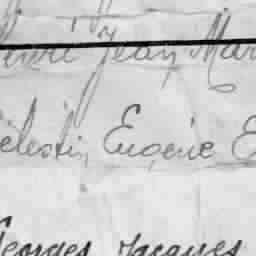 Henri Jean Mar
Célestin, Eugène E
Georges Jacques